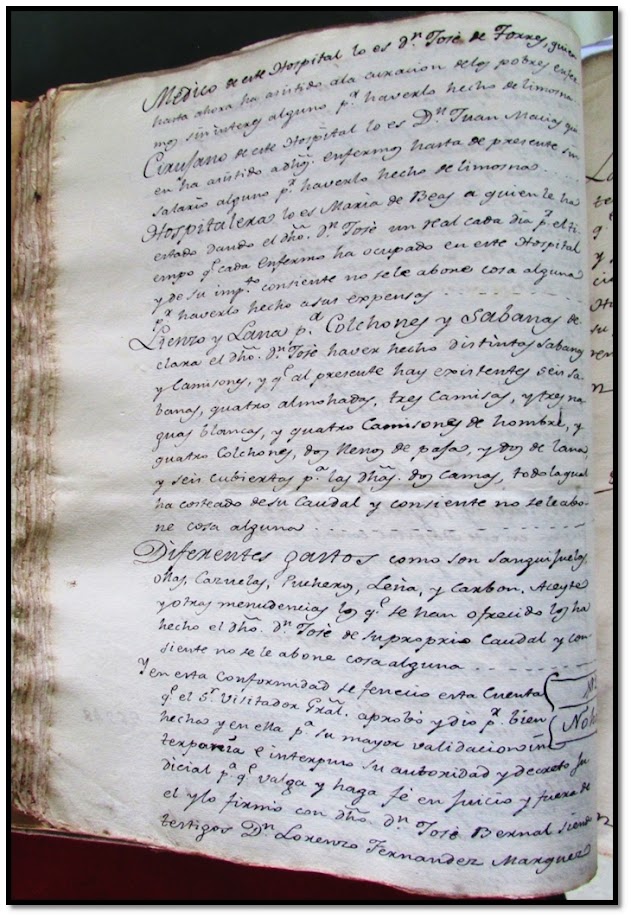 Medico de este Hospital lo es Dn. José de Torres, quien
hasta ahora ha asistido ala curacion delos pobres enfer
mos sin interes alguno pr. haverlo hecho de limosna
Cirujano de este Hospital lo es Dn. Juan Macias qui
en ha asistido a dhos. enfermos hasta de presente sin
salario alguno pr. haverlo hecho de limosna
Hospitalera lo es Maria de Beas a quien le ha
estado dando el dho. Dn. José un real cada dia pr. el ti
empo qe. cada enfermo ha ocupado en este Hospital
y de su impte. consiente no sele abone cosa alguna
pr. haverlo hecho a sus expensas
Lienzo y Lana pa. Colchones y Sabanas de
clara el dho. Dn. José haver hecho distintas sabanas
y Camisones, y qe. al presente hay existentes seis sa
banas, quatro almohadas, tres camisas, y tres na
guas blancas, y quatro Camisones de hombre, y
quatro Colchones, dos llenos de paja, y dos de lana
y seis cubiertas pa. las dhas. dos camas, todo la qual
ha costeado de su Caudal y consiente no se le abo
ne cosa alguna
Diferentes gastos como son sanguijuelas
ollas, Cazuelas, Puchero, Leña, y Carbon, Aceyte
y otras menudencias los qe. se han ofrecido los ha
hecho el dho. Dn. José de su proprio Caudal y con
siente no se le abone cosa alguna
Y en esta conformidad se fenecio esta Cuenta
qe. el Sr. Visitador Gral. aprobó y dio pr. bien
hecha y en ella pa. su mayor validacion in
terponia e interpuso su autoridad y decreto Ju
dicial pa. qe. valga y haga fé en Juicio y fuera de
el y lo firmó con dho. Dn. José Bernal siendo
testigos Dn. Lorenzo Fernandez Marquez